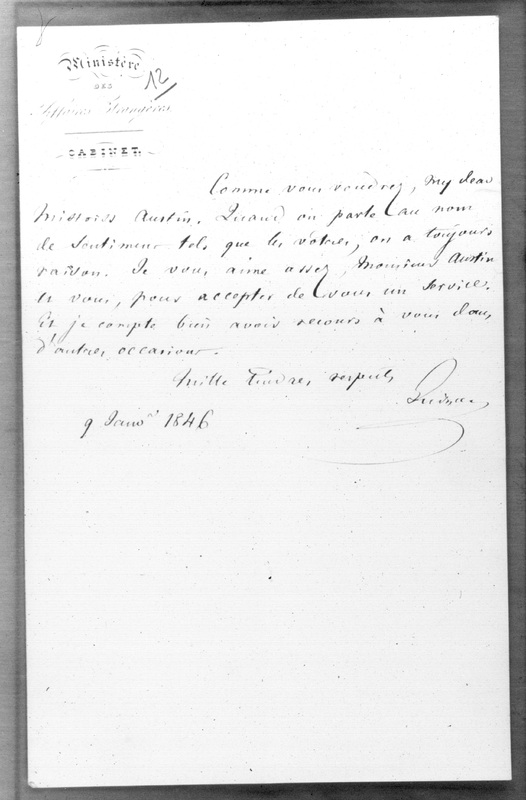 Ministère
DES
Affaires Étrangères
12
CABINET.
Comme vous voudrez, my dear
Mistriss Austin. Quand on parle au nom
de sentimens tels que les vôtres, on a toujours
raison. Je vous aime assez, Monsieur Austin
et vous, pour accepter de vous un service.
Et je compte bien avoir recours à vous dans
d'autres occasions.
Mille tendres respects
Guizot
9 Janvr 1846